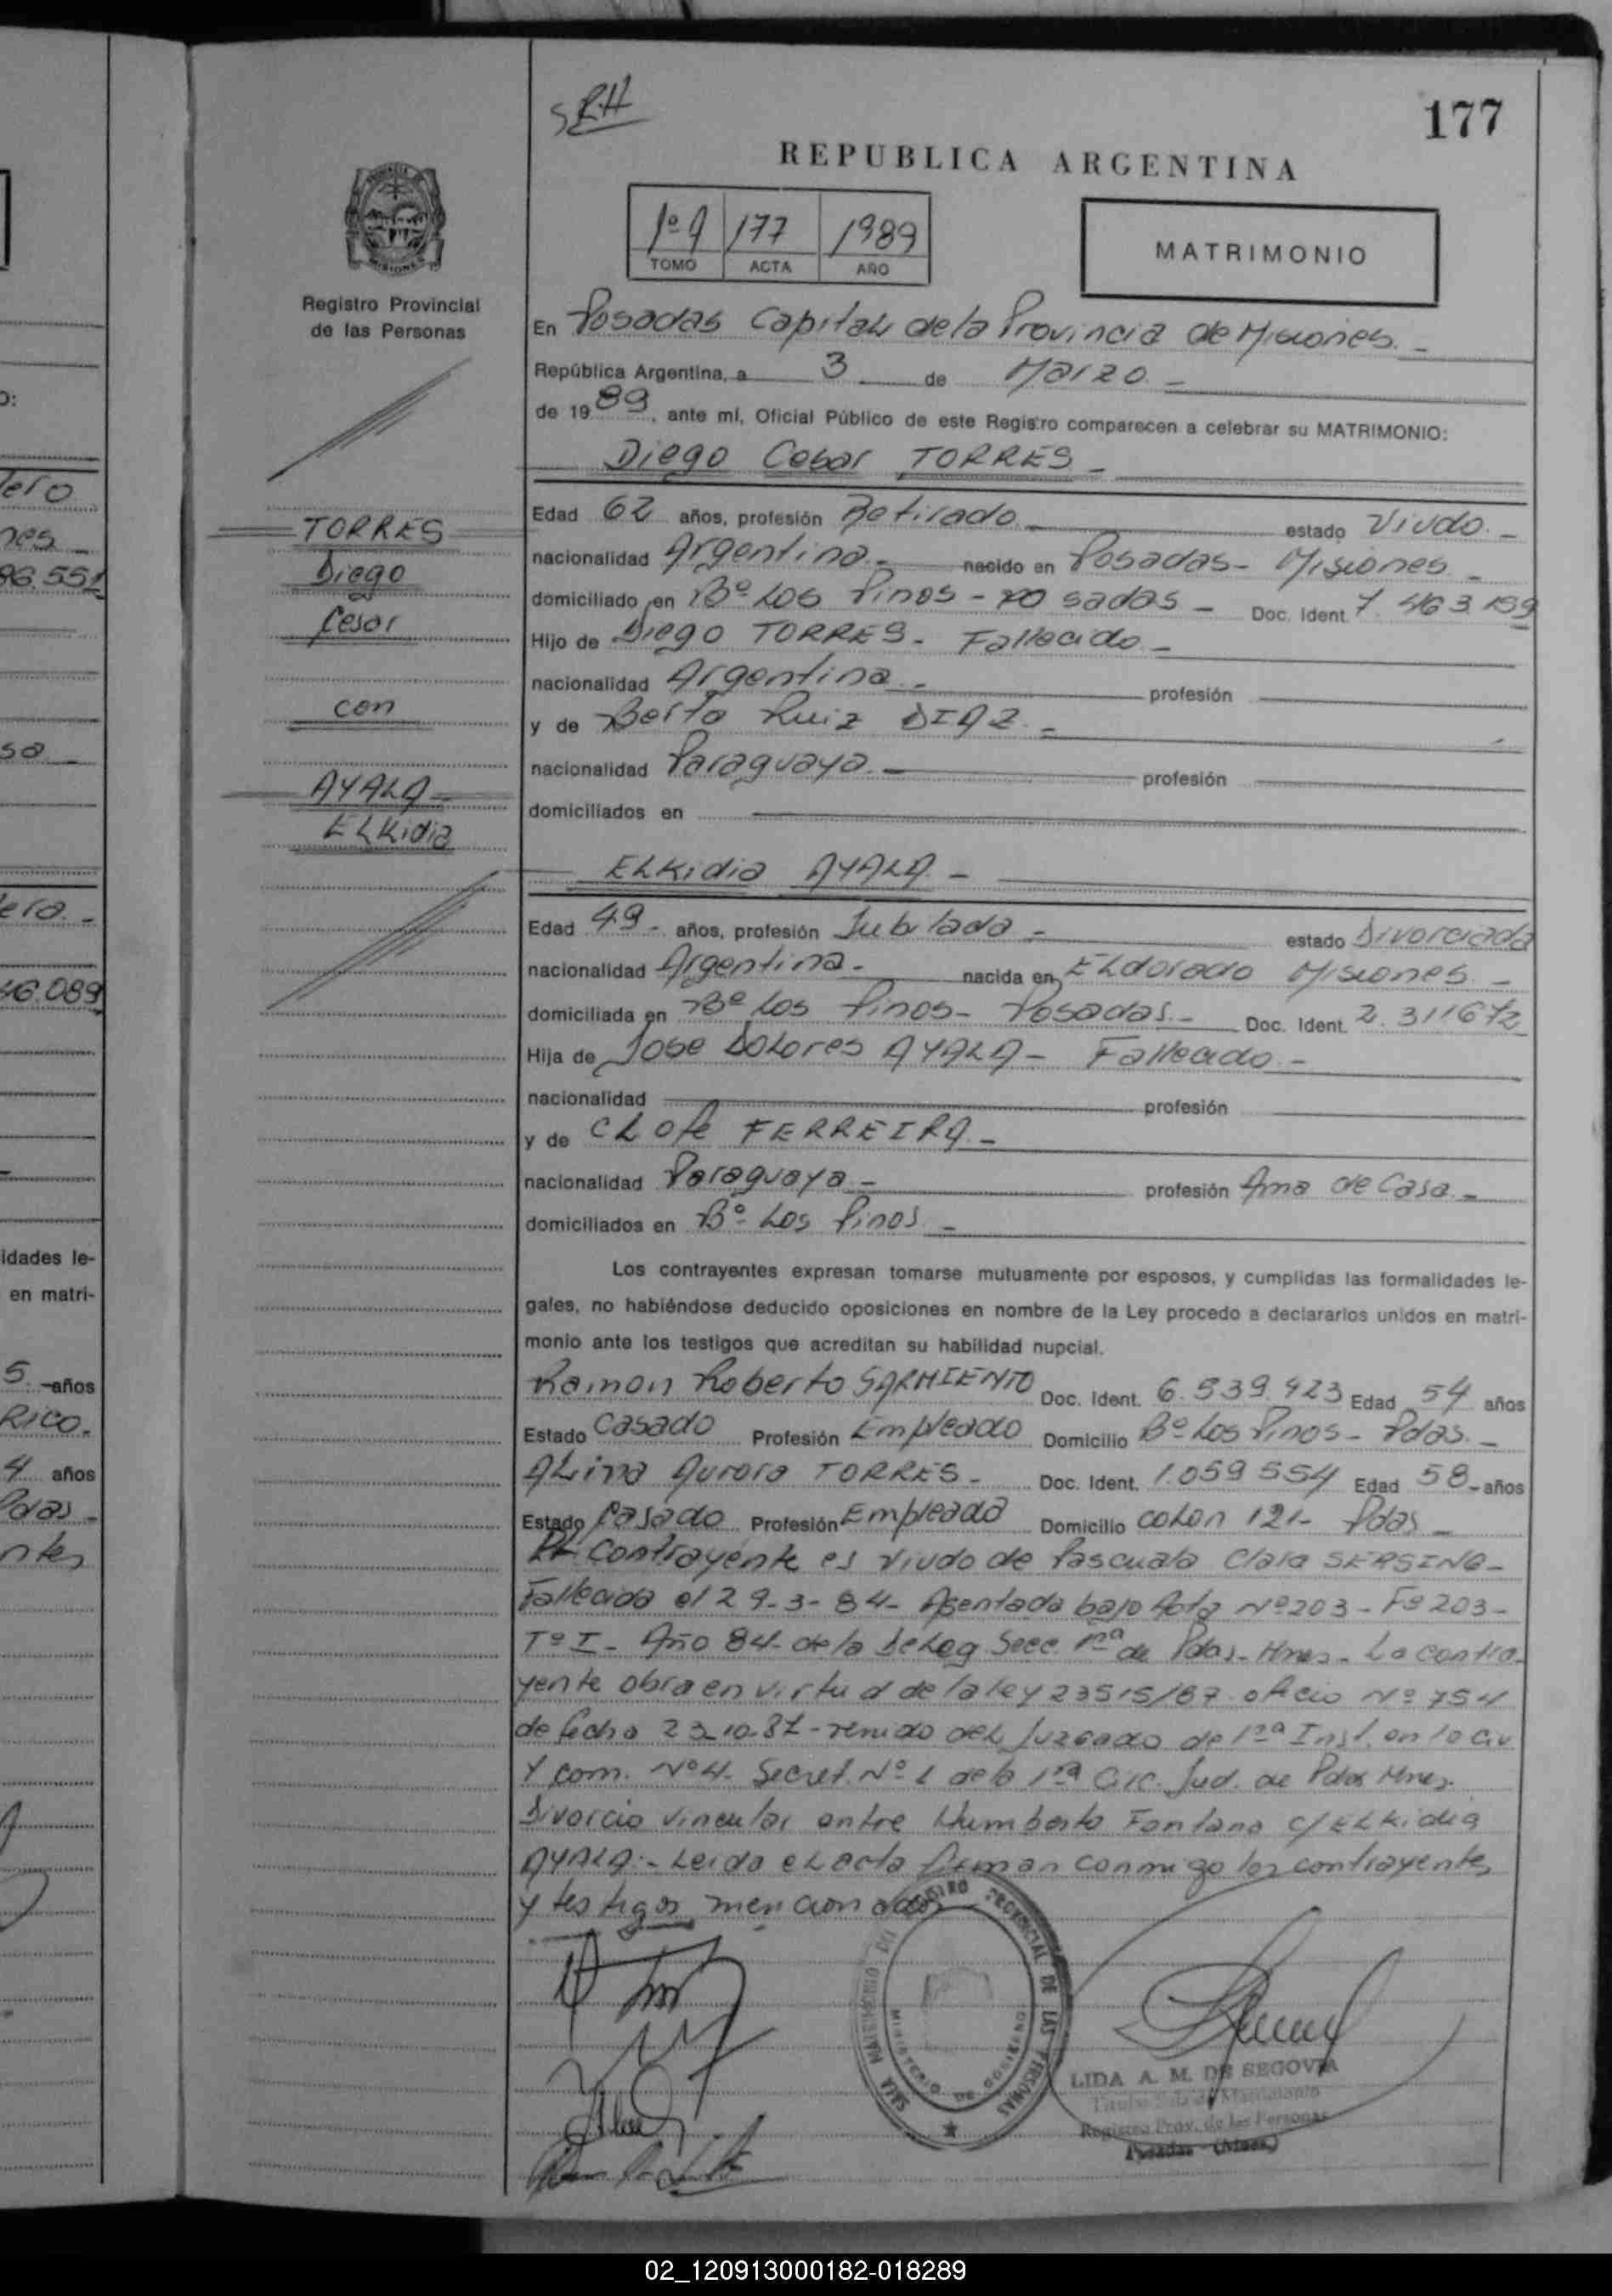 SRH
177
REPUBLICA ARGENTINA
1º 177 1989
TOMO ACTA AÑO
MATRIMONIO
MISIONES
Registro Provincial
de las Personas
En Posadas Capital de la Provincia de Misiones. -
República Argentina, a 3 de Marzo. -
de 1989, ante mí, Oficial Público de este Registro comparecen a celebrar su MATRIMONIO:
Diego Cesar TORRES -
Edad 62 años, profesión Retirado. - estado Viudo. -
nacionalidad Argentina. - nacido en Posadas - Misiones. -
domiciliado en Bº Los Pinos - Posadas - Doc. Ident. 7.463.199
Hijo de Diego TORRES - Fallecido. -
nacionalidad Argentina. - profesión
y de Berta Ruiz DIAZ. -
nacionalidad Paraguaya. - profesión
domiciliados en
TORRES
Diego
Cesar
con
AYALA
ELKidia
ELKidia AYALA. -
Edad 49 - años, profesión Jubilada - estado Divorciada
nacionalidad Argentina. - nacida en ELdorado Misiones. -
domiciliada en Bº Los Pinos - Posadas. - Doc. Ident. 2.311672
Hija de Jose DoLores AYALA - Fallecido. -
nacionalidad profesión
y de CLofe FERREIRA. -
nacionalidad Paraguaya - profesión Ama de Casa. -
domiciliados en Bº Los Pinos -
Los contrayentes expresan tomarse mutuamente por esposos, y cumplidas las formalidades le-
gales, no habiéndose deducido oposiciones en nombre de la Ley procedo a declararlos unidos en matri-
monio ante los testigos que acreditan su habilidad nupcial.
Ramon Roberto SARMIENTO Doc. Ident. 6.539.423 Edad 54 años
Estado Casado Profesión Empleado Domicilio Bº Los Pinos - Pdas. -
ALina Aurora TORRES - Doc. Ident. 1.059554 Edad 58 - años
Estado Casado Profesión Empleada Domicilio coLon 121 - Pdas -
EL Contrayente es viudo de Pascuala Clara
Fallecida el 29-3-84 - Asentada bajo Acta Nº 203 - Fº 203 -
Tº I - Año 84 - de la DeLeg. Secc. 1ra de Pdas - Mnes - La contra-
yente obra en virtud de la ley 23515/87 - oficio Nº 754
de fecha 23-10-87 - del Juzgado de 1ra Inst. en lo Civ
y com. Nº 4 - Secret. Nº 1 de la 1ra Circ. Jud. de Pdas Mnes.
Divorcio vincular entre Humberto Fontana c/ ELKidia
AYALA. - Leida eL acta firman conmigo los contrayentes
y testigos mencionados
REGISTRO PROVINCIAL DE LAS PERSONAS
MINISTERIO DE GOBIERNO
LIDA A. M. DE SEGOVIA
Registro Prov. de las Personas
Posadas - (Mnes.)
ero
nes -
96.551
sa -
era. -
46.089
idades le-
en matri-
5. - años
RICO.
4 años
Pdas -
ntes
02_120913000182-018289